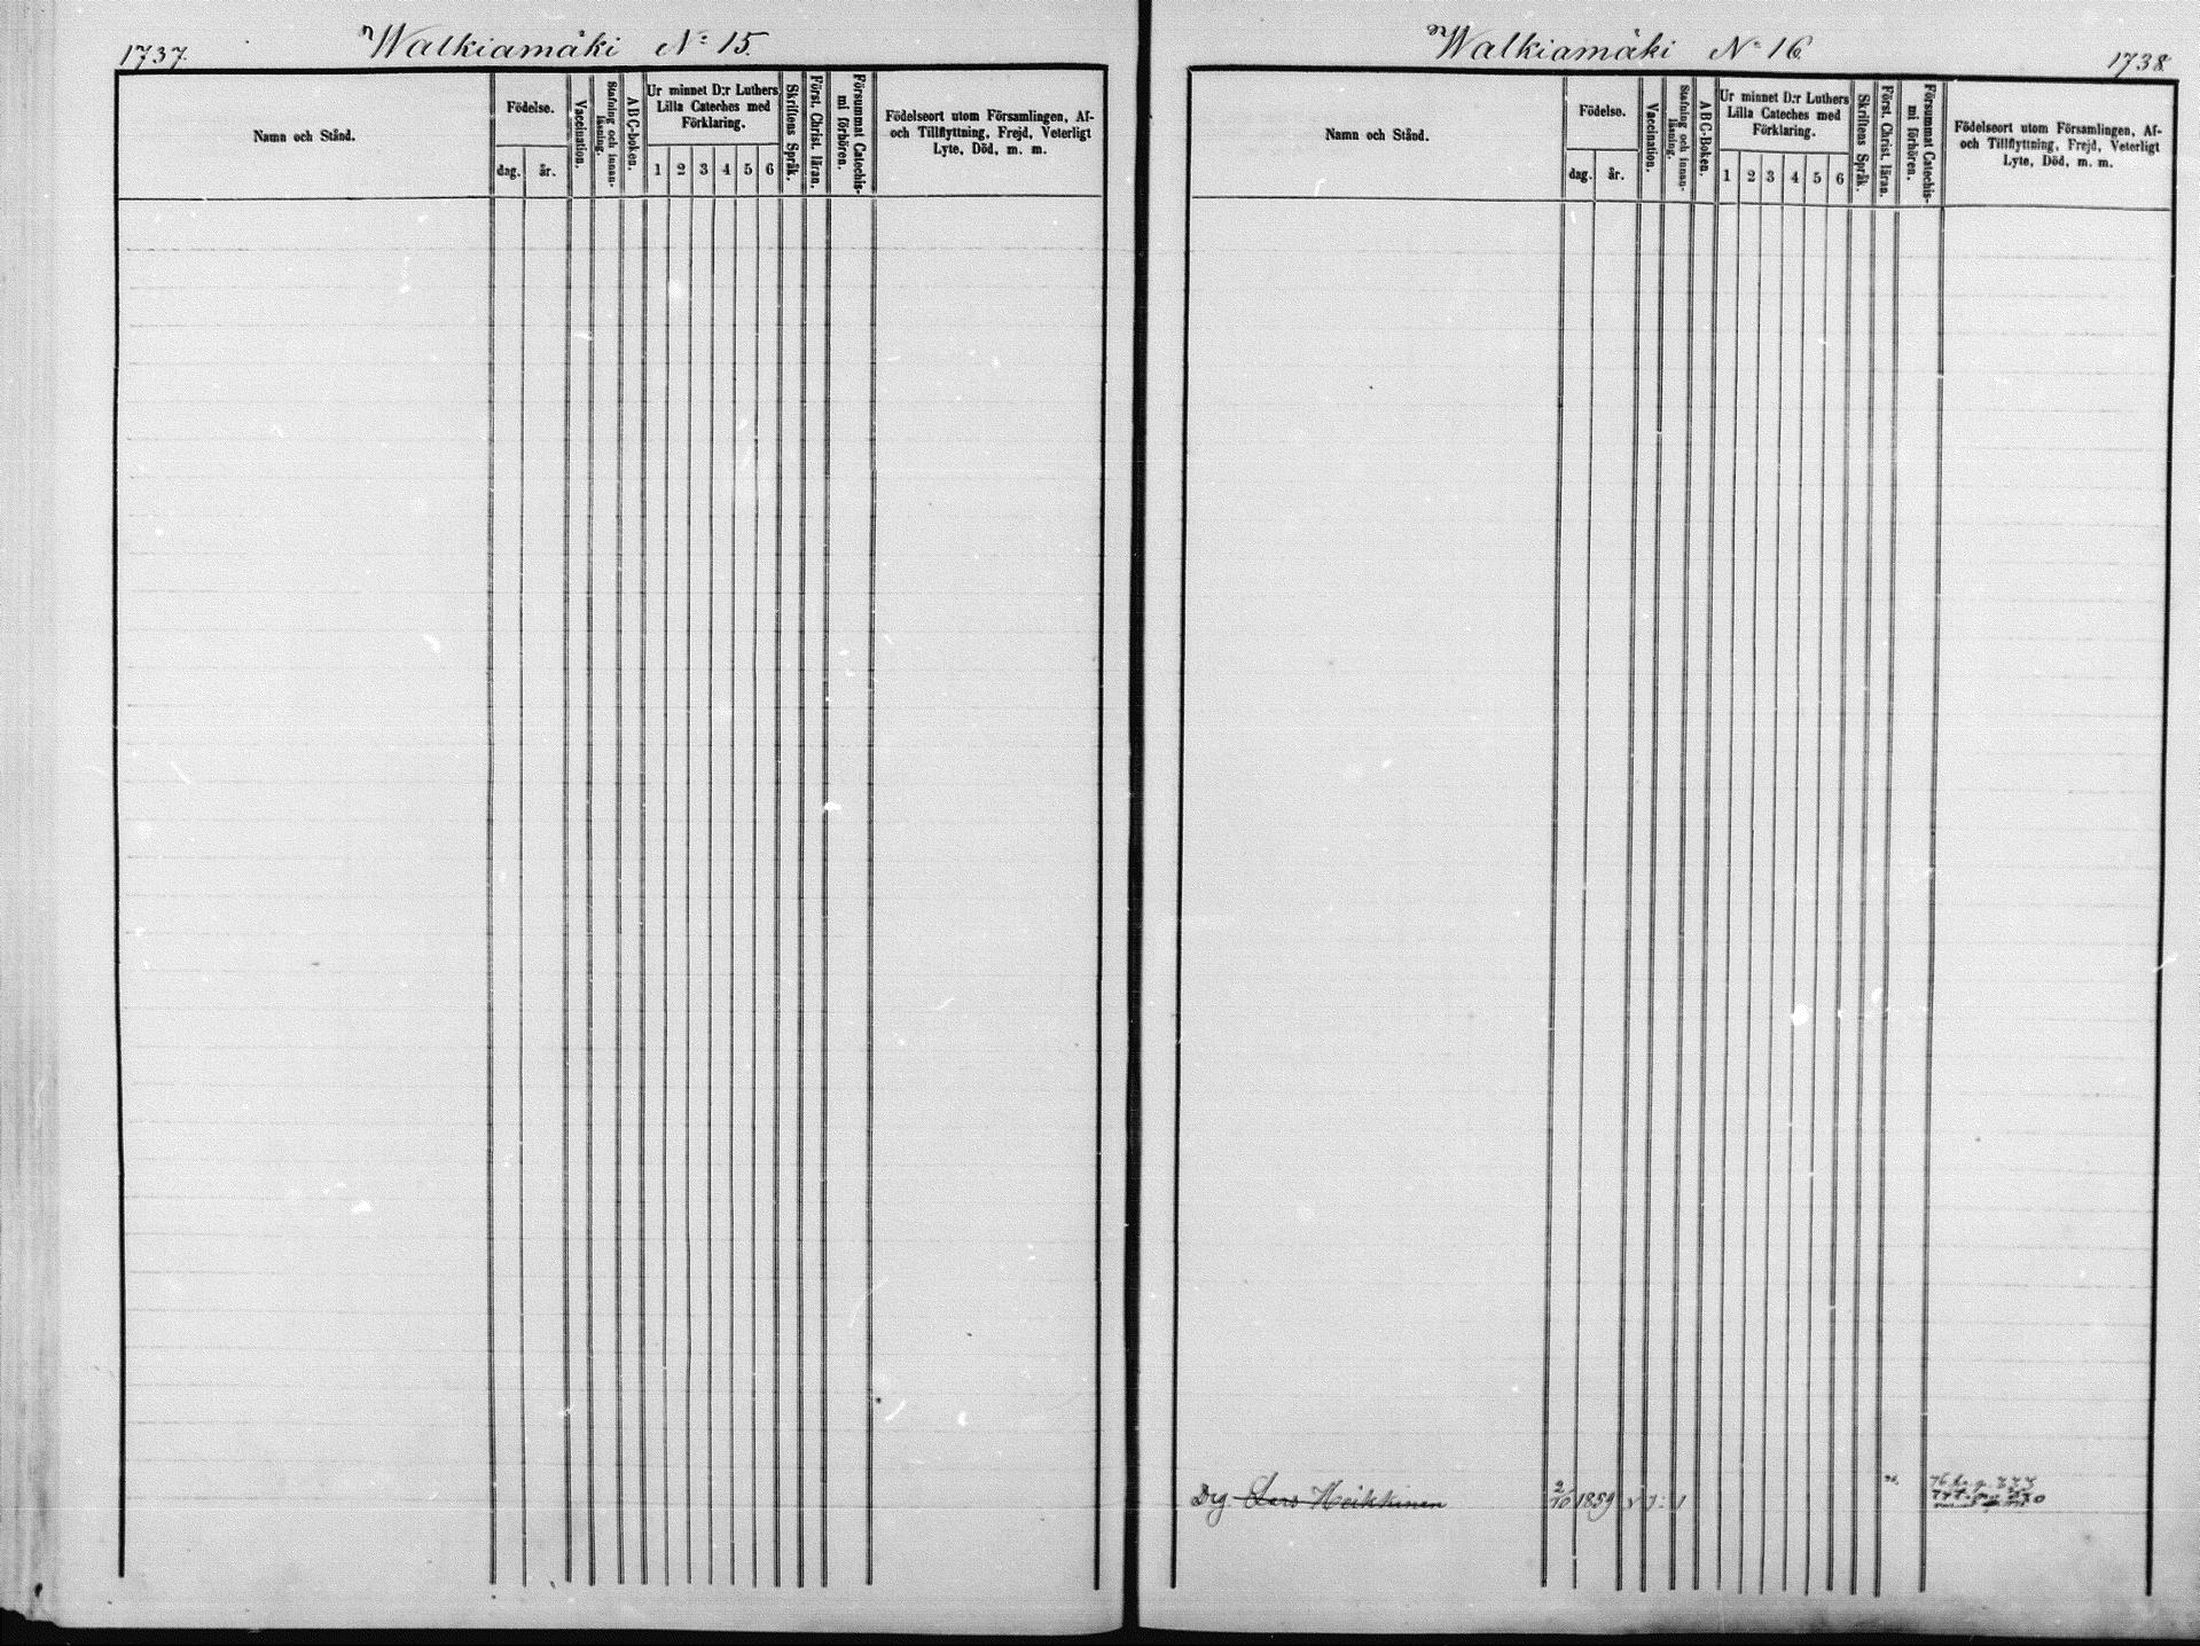 1737.
Walkiamäki No 15.
Namn och Stånd.
Födelse.
dag.
år.
Vaccination.
Stafning och innan-
läsning.
ABC-boken.
Ur minnet D:r Luthers
Lilla Cateches med
Förklaring.
1 2 3 4 5 6
Skriftens Språk.
Först. Christ. läran.
Försummat Catechis-
mi förhören.
Födelseort utom Församlingen, Af-
och Tillflyttning, Frejd, Veterligt
Lyte, Död, m. m.
Walkiamäki No 16.
1738.
Namn och Stånd.
Födelse.
dag.
år.
Vaccination.
Stafning och innan-
läsning.
ABC-Boken.
Ur minnet D:r Luthers
Lilla Cateches med
Förklaring.
1 2 3 4 5 6
Skriftens Språk.
Först. Christ. läran.
Försummat Catechis-
mi förhören.
Födelseort utom Församlingen, Af-
och Tillflyttning, Frejd, Veterligt
Lyte, Död, m. m.
Drg Lars Heikkinen 2/10 1859